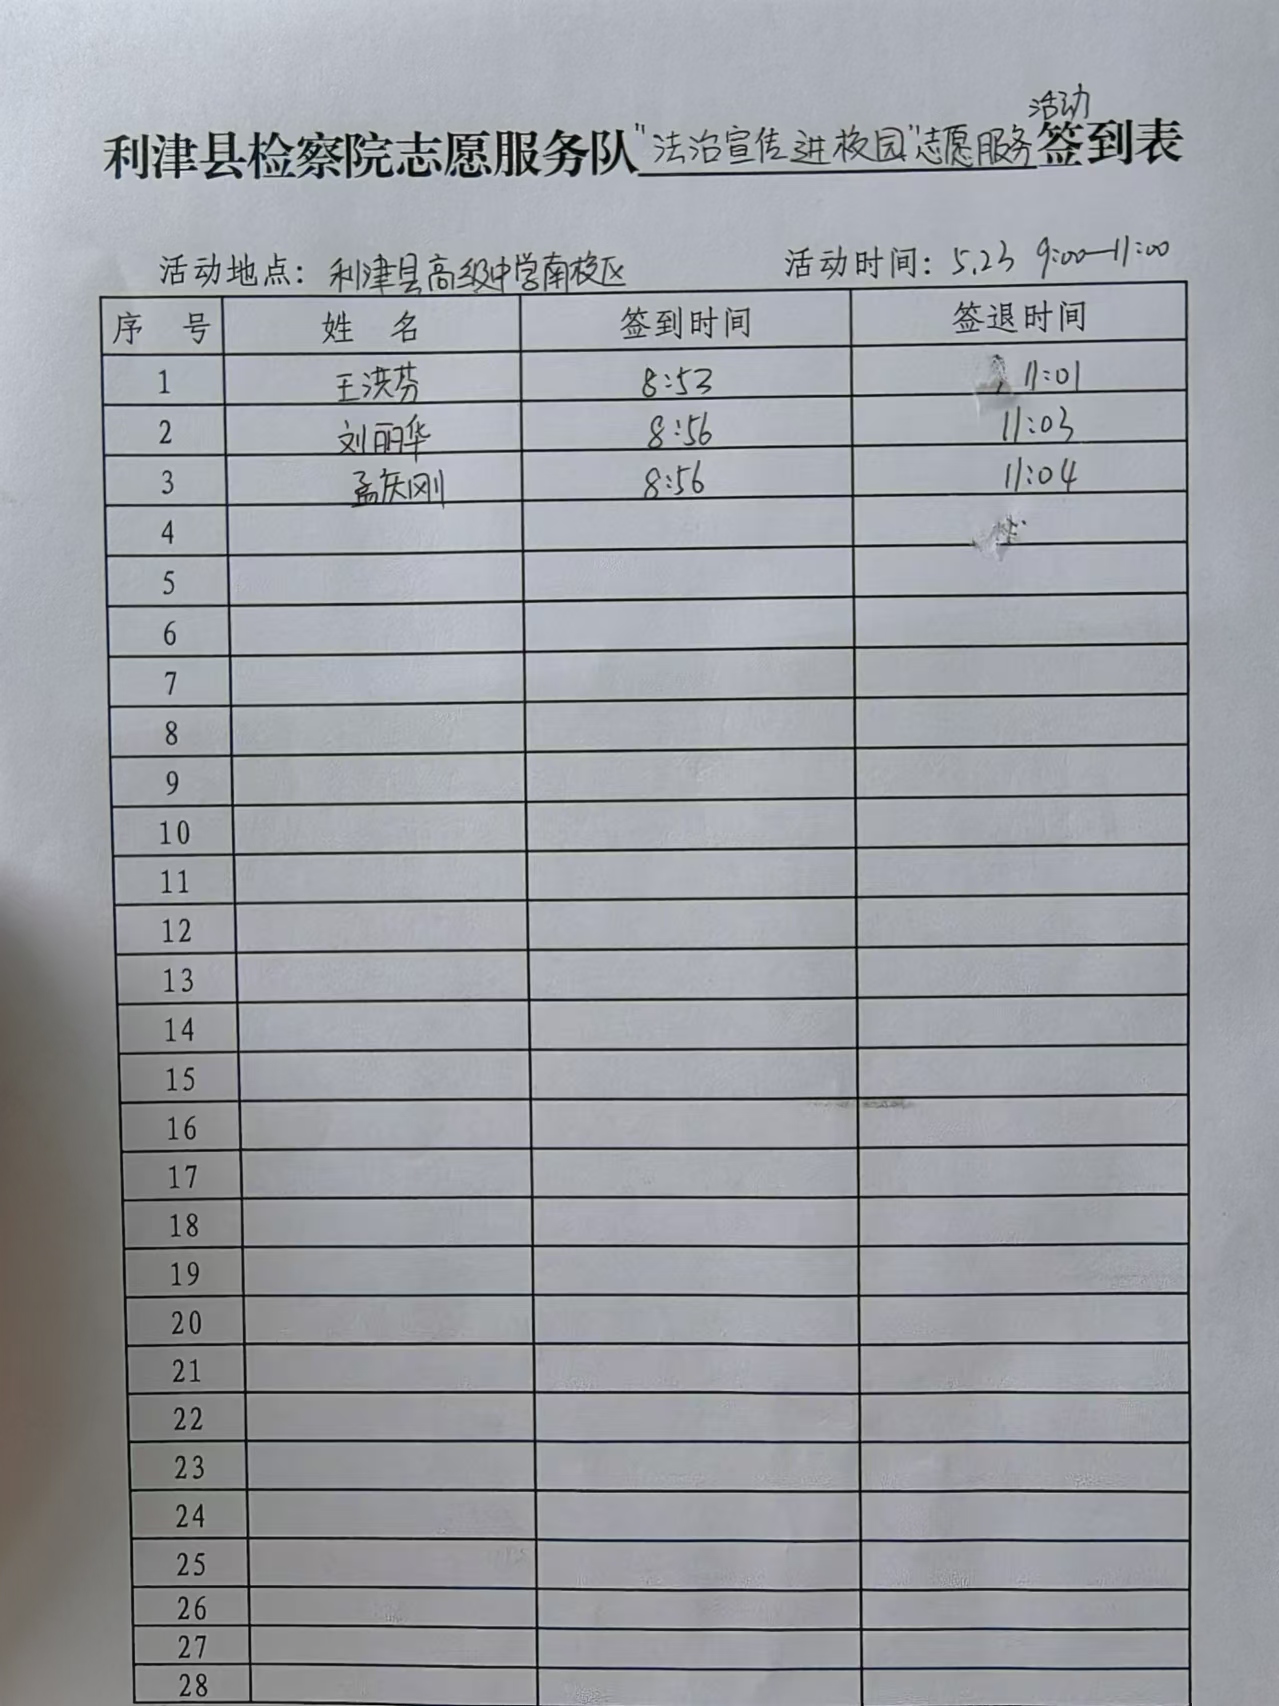 利津县检察院志愿服务队"法治宣传进校园"志愿服务活动签到表
活动地点：利津县高级中学南校区 活动时间：5.23 9:00—11:00
序 号 姓 名 签到时间 签退时间
1 王洪芬 8:53 11:01
2 刘丽华 8:56 11:03
3 孟庆刚 8:56 11:04
4
5
6
7
8
9
10
11
12
13
14
15
16
17
18
19
20
21
22
23
24
25
26
27
28